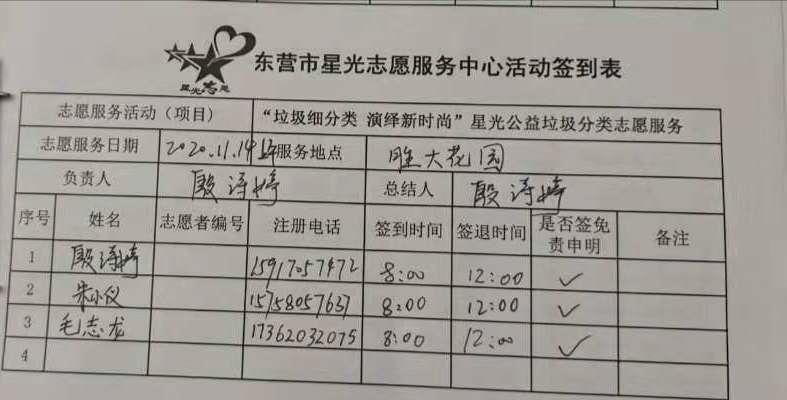 星光志愿
东营市星光志愿服务中心活动签到表
志愿服务活动（项目） “垃圾细分类 演绎新时尚”星光公益垃圾分类志愿服务
志愿服务日期 2020.11.14 服务地点 胜大花园
负责人 殷诗婷 总结人 殷诗婷
序号 姓名 志愿者编号 注册电话 签到时间 签退时间 是否签免责申明 备注
1 殷诗婷 15917057472 8:00 12:00 ✓
2 朱小仪 15758057637 8:00 12:00 ✓
3 毛志龙 17362032075 8:00 12:00 ✓
4